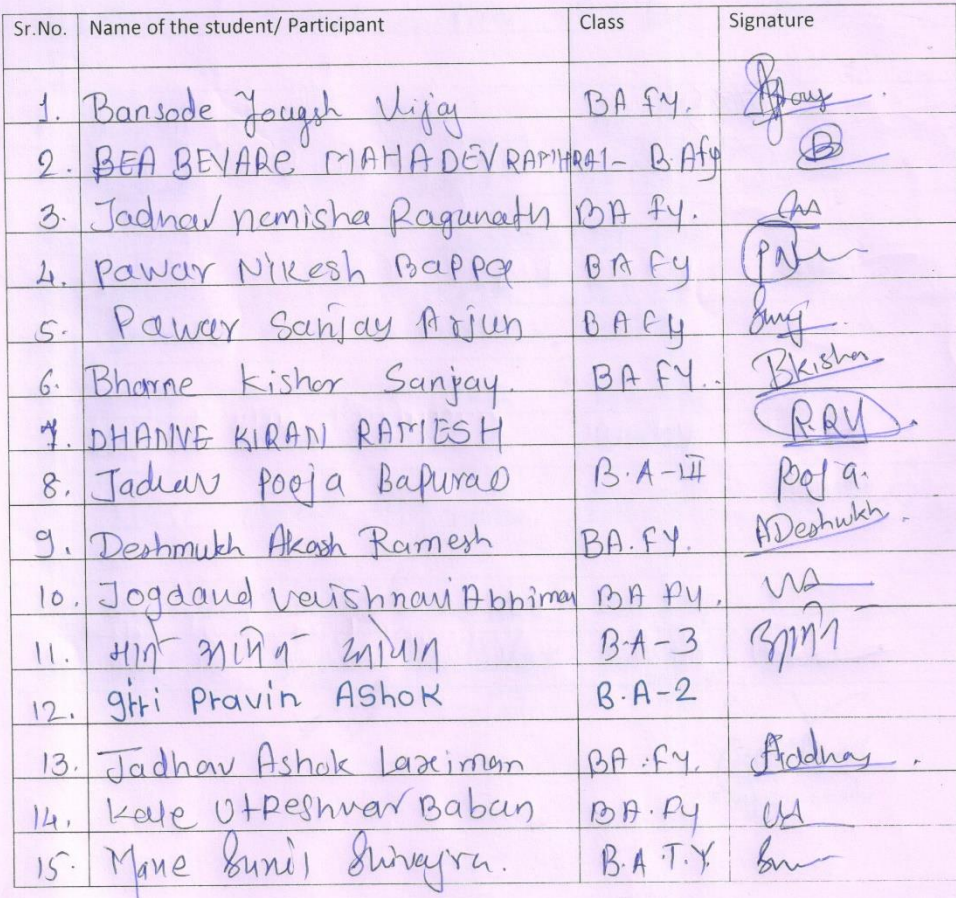 Sr.No. Name of the student/ Participant Class Signature
1. Bansode Yougsh Vijay BA Fy.
2. BEA BEVARE MAHADEV B.Afy
3. Jadhav Nemisha Ragunath BA Fy.
4. Pawar Nikesh Bappa BA Fy PN
5. Pawar Sanjay Arjun BA Fy
6. Bharne Kishor Sanjay. BA FY. Bkishor
7. DHANVE KIRAN RAMESH
8. Jadhav Pooja Bapurao B.A-III Pooja.
9. Deshmukh Akash Ramesh BA.FY. ADeshukh.
10. Jogdand Vaishnavi Abhiman BA Fy.
11. B.A-3
12. giri Pravin AShok B.A-2
13. Jadhav Ashok Laximan BA.Fy.
14. Kale Utreshvar Baban BA.Fy
15. Mane Sunil B.A.T.Y